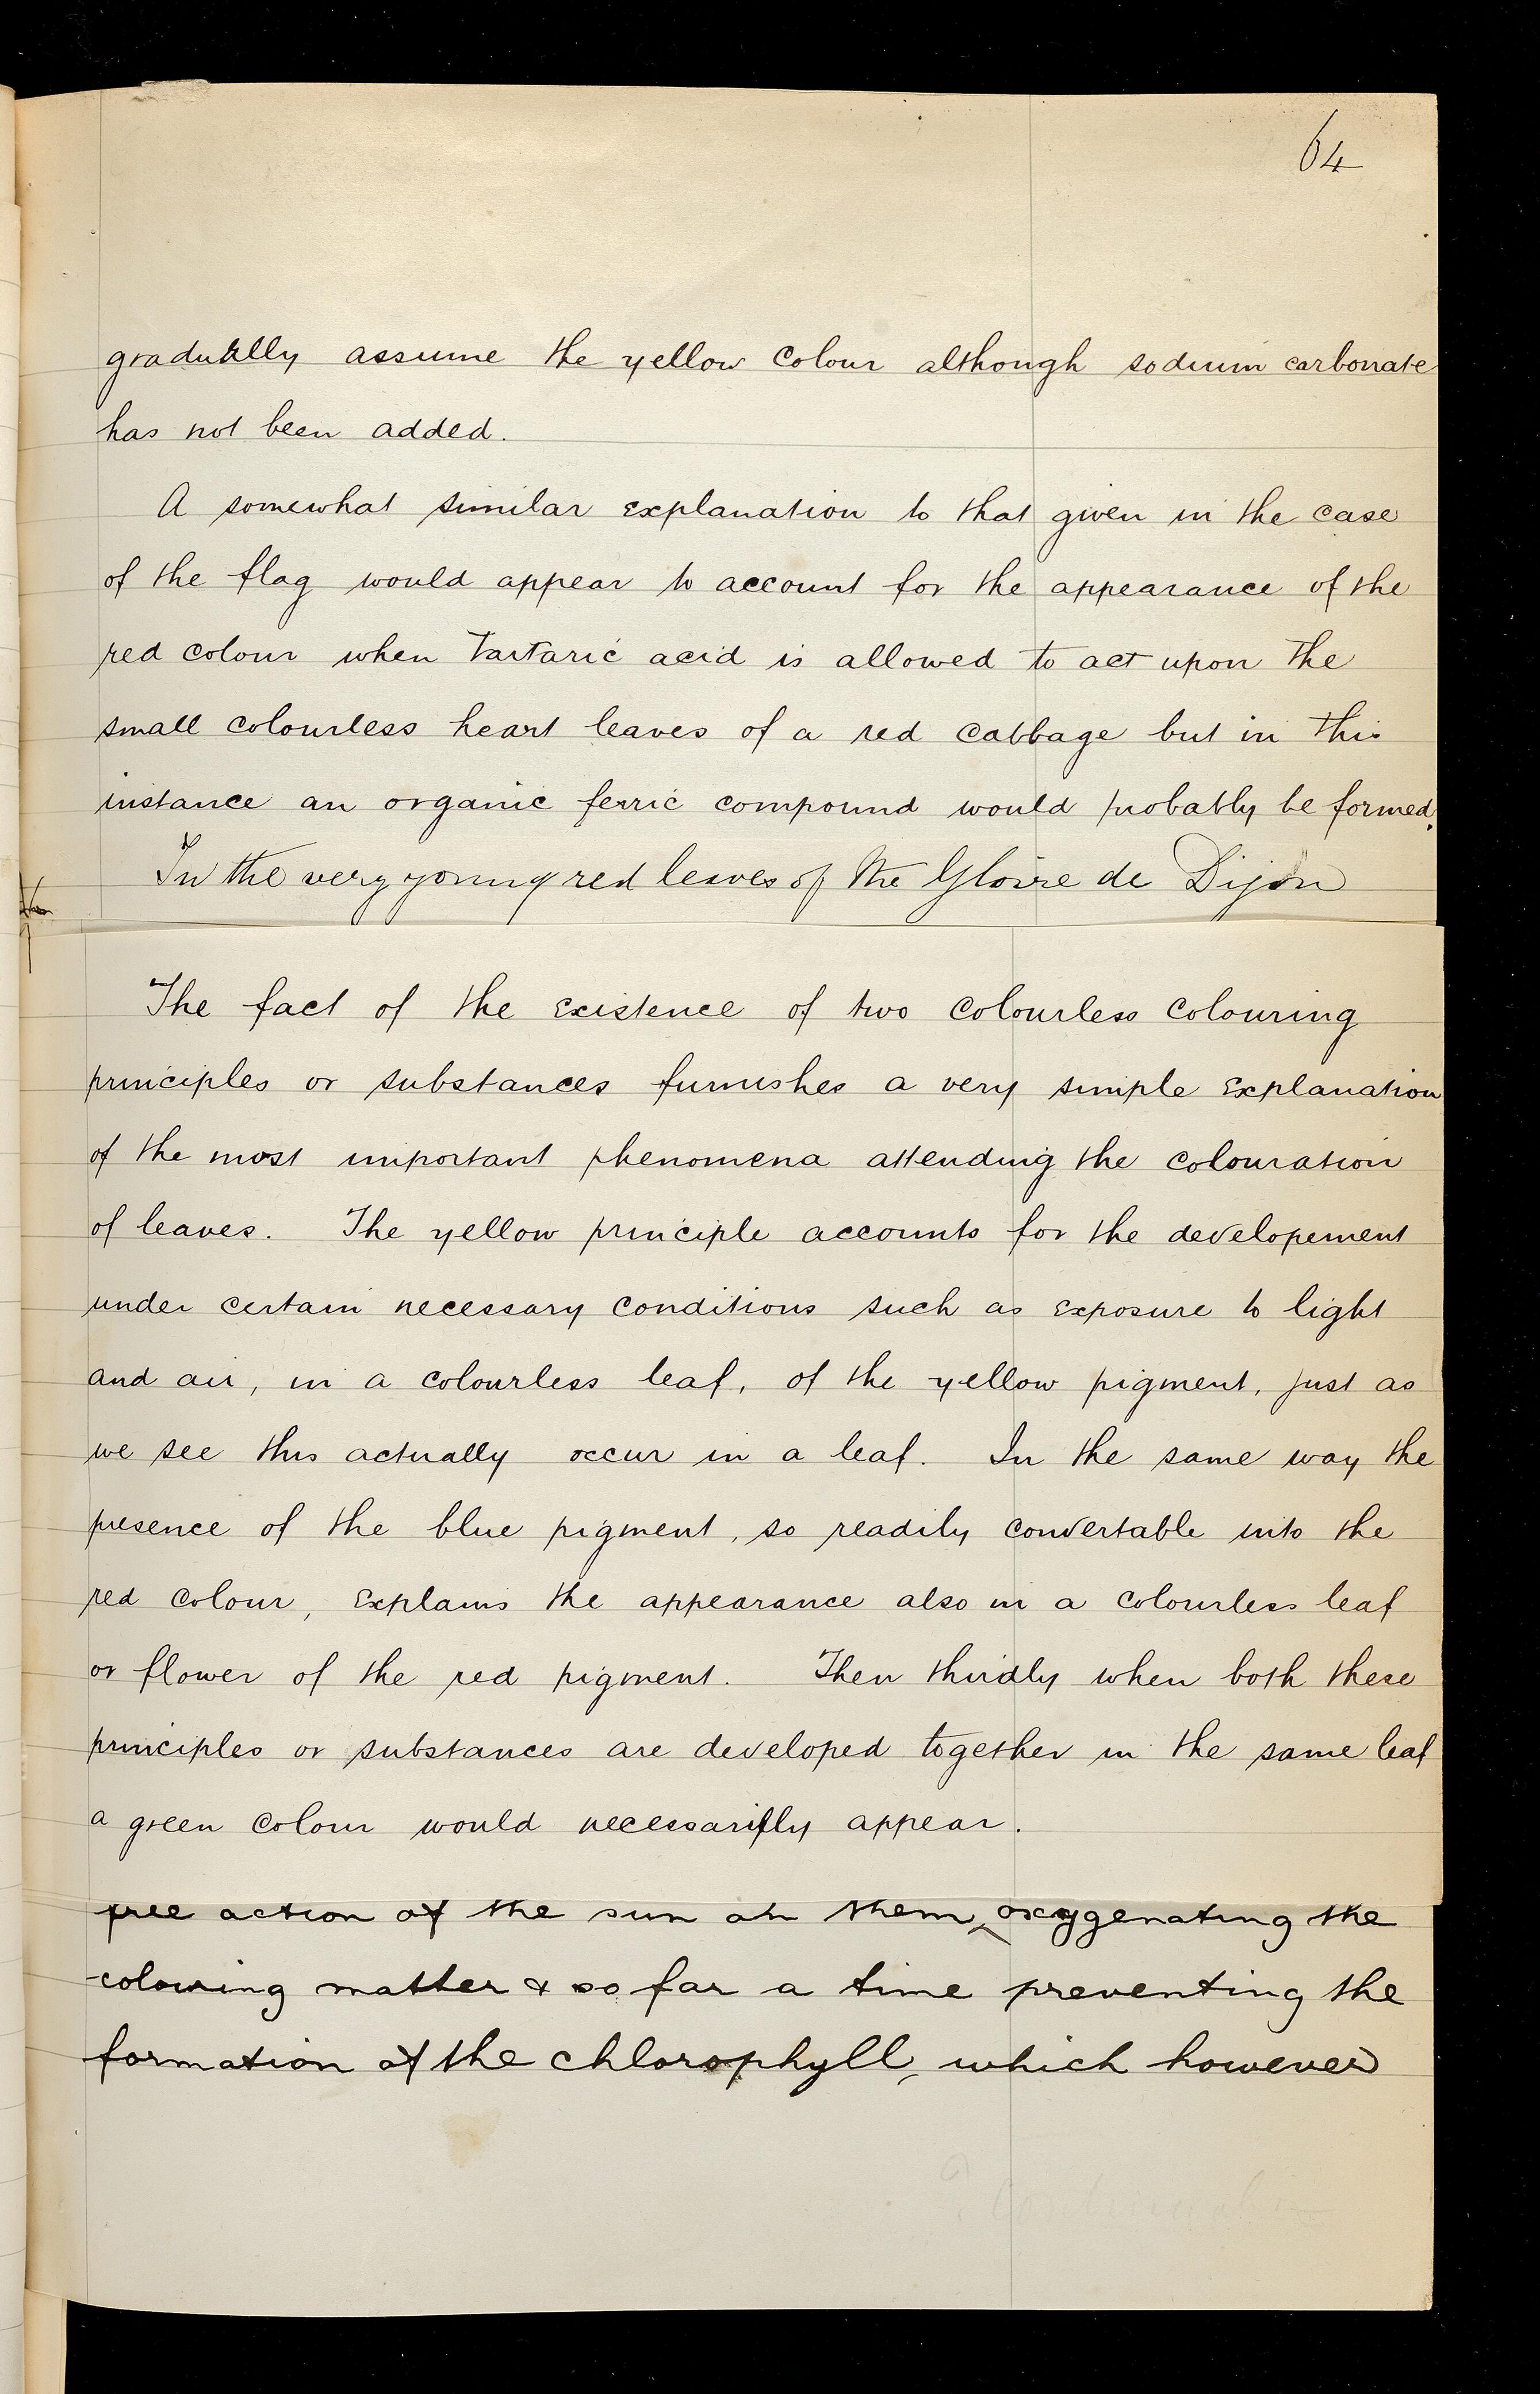 64
gradually assume the yellow colour although sodium carbonate
has not been added.
A somewhat similar explanation to that given in the case
of the flag would appear to account for the appearance of the
red colour when Tartaric acid is allowed to act upon the
small colourless heart leaves of a red cabbage but in this
instance an organic ferric compound would probably be formed.
In the very young red leaves of the Gloire de Dijon
The fact of the existence of two colourless colouring
principles or substances furnishes a very simple explanation
of the most important phenomena attending the colouration
of leaves. The yellow principle accounts for the developement
under certain necessary conditions such as exposure to light
and air, in a colourless leaf, of the yellow pigment, just as
we see this actually occur in a leaf. In the same way the
presence of the blue pigment, so readily convertable into the
red colour, explains the appearance also in a colourless leaf
or flower of the red pigment. Then thirdly when both these
principles or substances are developed together in the same leaf
a green colour would necessarily appear.
free action of the sun on them, oxygenating the
colouring matter & so for a time preventing the
formation of the chlorophyll, which however